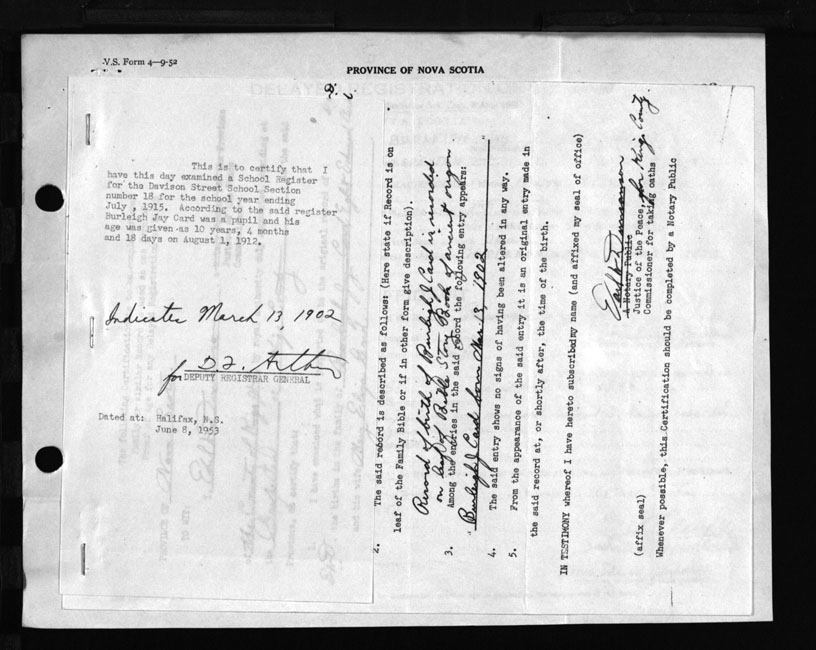 V.S. Form 4—9-52
PROVINCE OF NOVA SCOTIA
This is to certify that I
have this day examined a School Register
for the Davison Street School Section
number 18 for the school year ending
July , 1915. According to the said register
Burleigh Jay Card was a pupil and his
age was given as 10 years, 4 months
and 18 days on August 1, 1912.
Indicates March 13, 1902
for
DEPUTY REGISTRAR GENERAL
Dated at: Halifax, N.S.
June 8, 1953
2. The said record is described as follows: (Here state if Record is on
leaf of the Family Bible or if in other form give description).
Record of birth of Burleigh J Card is recorded
on leaf of Bible Story Book of ancient origin
3. Among the entries in the said record the following entry appears:
"Burleigh J Card born Mar. 13, 1902"
4. The said entry shows no signs of having been altered in any way.
5. From the appearance of the said entry it is an original entry made in
the said record at, or shortly after, the time of the birth.
IN TESTIMONY whereof I have hereto subscribed my name (and affixed my seal of office)
A Notary Public
Justice of the Peace, for Kings County
Commissioner for taking oaths
(affix seal)
Whenever possible, this Certification should be completed by a Notary Public